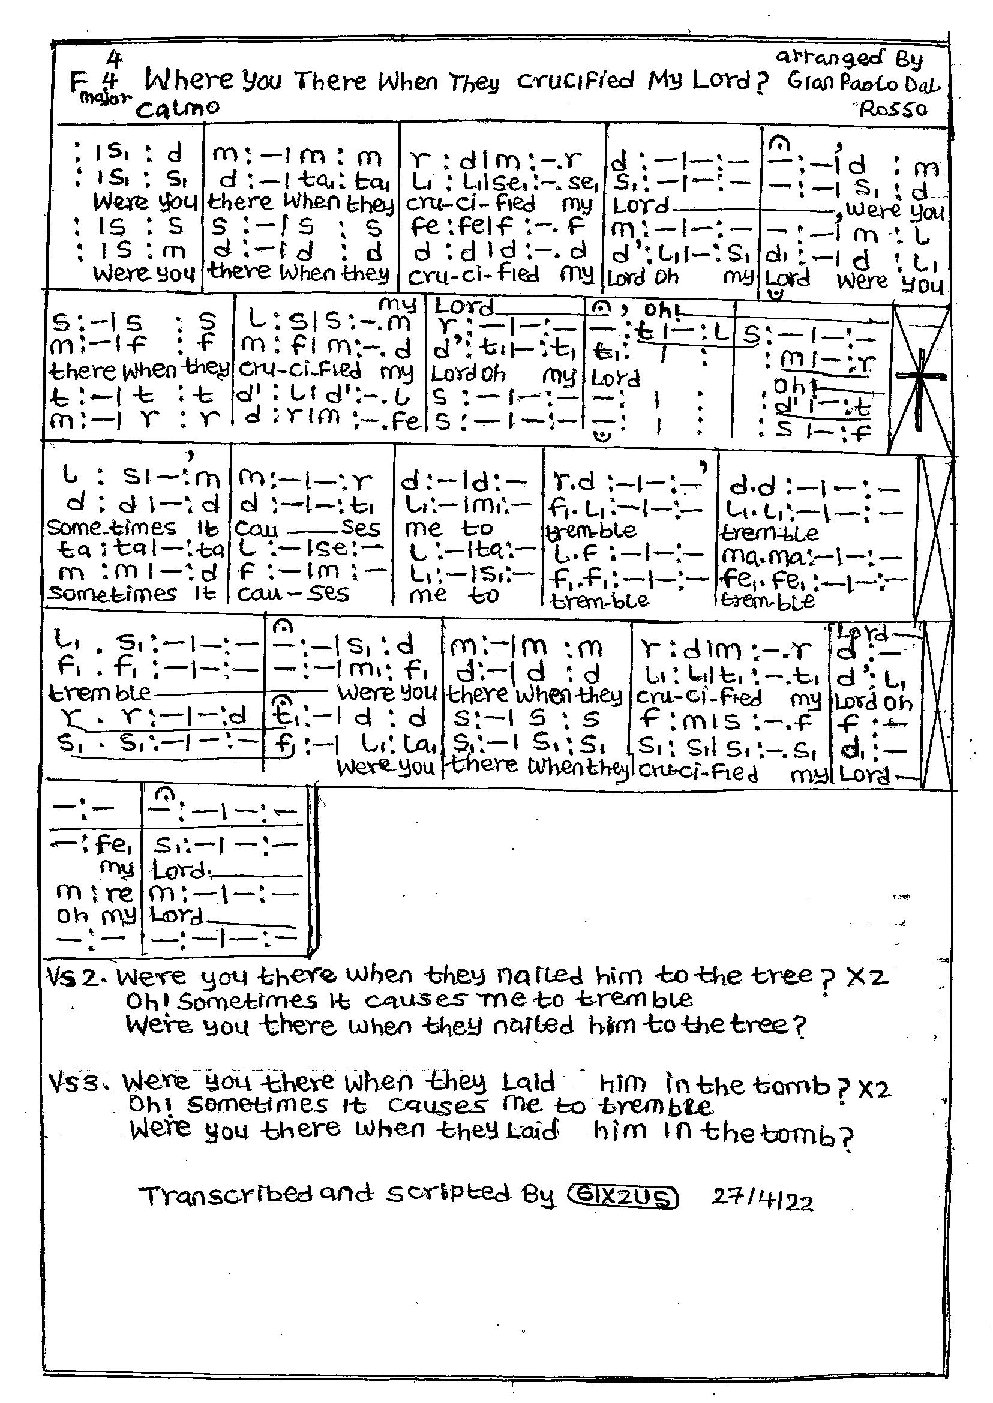 4
F 4 Where You There When They Crucified My Lord?
major
Calmo
arranged By
Gian Paolo Dal
Rosso
: | s₁ : d | m : – | m : m | r : d | m : – . r | d : – | – : – | – : – | d : m
: | s₁ : s₁ | d : – | ta₁ : ta₁ | l₁ : l₁ | se₁ : – . se₁ | s₁ : – | – : – | – : – | s₁ : d
Were you there When they cru-ci-fied my Lord , were you
: | s : s | s : – | s : s | fe : fe | f : – . f | m : – | – : – | – : – | m : l
: | s : m | d : – | d : d | d : d | d : – . d | d' : l₁ | – : s₁ | d₁ : – | d : l₁
Were you there When they cru-ci-fied my Lord oh my Lord were you
my Lord , oh!
s : – | s : s | l : s | s : – . m | r : – | – : – | – : t | – : l | s : – | – : –
m : – | f : f | m : f | m : – . d | d' : t₁ | – : t₁ | t₁ : | : | : m | – : r
there when they cru-ci-fied my Lord oh my Lord oh!
t : – | t : t | d' : l | d' : – . l | s : – | – : – | – : | : | : d' | – : t
m : – | r : r | d : r | m : – . fe | s : – | – : – | – : | : | : s | – : f
l : s | – : m | m : – | – : r | d : – | d : – | r . d : – | – : – | d . d : – | – : –
d : d | – : d | d : – | – : t₁ | l₁ : – | m₁ : – | f₁ . l₁ : – | – : – | l₁ . l₁ : – | – : –
Some-times It cau — ses me to trem-ble trem-ble
ta : ta | – : ta | l : – | se : – | l : – | ta : – | l . f : – | – : – | ma . ma : – | – : –
m : m | – : d | f : – | m : – | l₁ : – | s₁ : – | f₁ . f₁ : – | – : – | fe₁ . fe₁ : – | – : –
Sometimes It cau - ses me to trem-ble trem-ble
Lord —
l₁ . s₁ : – | – : – | – : – | s₁ : d | m : – | m : m | r : d | m : – . r | d : –
f₁ . f₁ : – | – : – | – : – | m₁ : f₁ | d : – | d : d | l₁ : l₁ | t₁ : – . t₁ | d' : l₁
tremble Were you there when they cru-ci-fied my Lord oh
r . r : – | – : d | t₁ : – | d : d | s : – | s : s | f : m | s : – . f | f : –
s₁ . s₁ : – | – : – | f₁ : – | l₁ : ta₁ | s₁ : – | s₁ : s₁ | s₁ : s₁ | s₁ : – . s₁ | d₁ : –
Were you there when they cru-ci-fied my Lord —
– : – | – : – | – : –
– : fe₁ | s₁ : – | – : –
my Lord
m : re | m : – | – : –
oh my Lord
– : – | – : – | – : –
Vs 2. Were you there when they nailed him to the tree? X2
Oh! Sometimes It causes me to tremble
Were you there when they nailed him to the tree?
Vs 3. Were you there when they Laid him in the tomb? X2
Oh! Sometimes It causes me to tremble
Were you there when they Laid him in the tomb?
Transcribed and Scripted By G1X2US 27/4/22